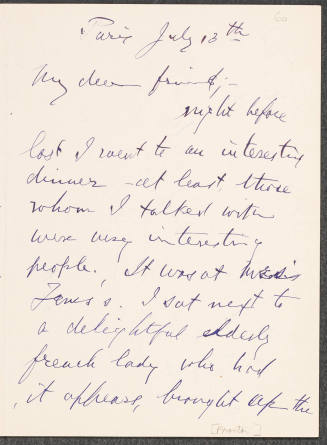 60
Paris July 13th
My dear friend;-
night before
last I went to an interesting
dinner - at least, those
whom I talked with
were very interesting
people. It was at
I sat next to
a delightful elderly
french lady who had
, it appears, brought up the